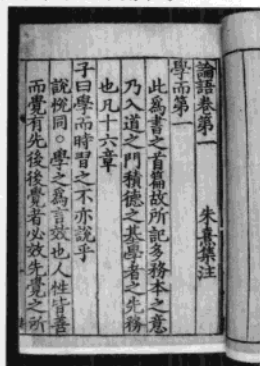 論語卷第一 朱熹集注
學而第一
此為書之首篇故所記多務本之意
乃入道之門積德之基學者之先務
也凡十六章
子曰學而時習之不亦說乎
說悅同○學之為言效也人性皆善
而覺有先後後覺者必效先覺之所